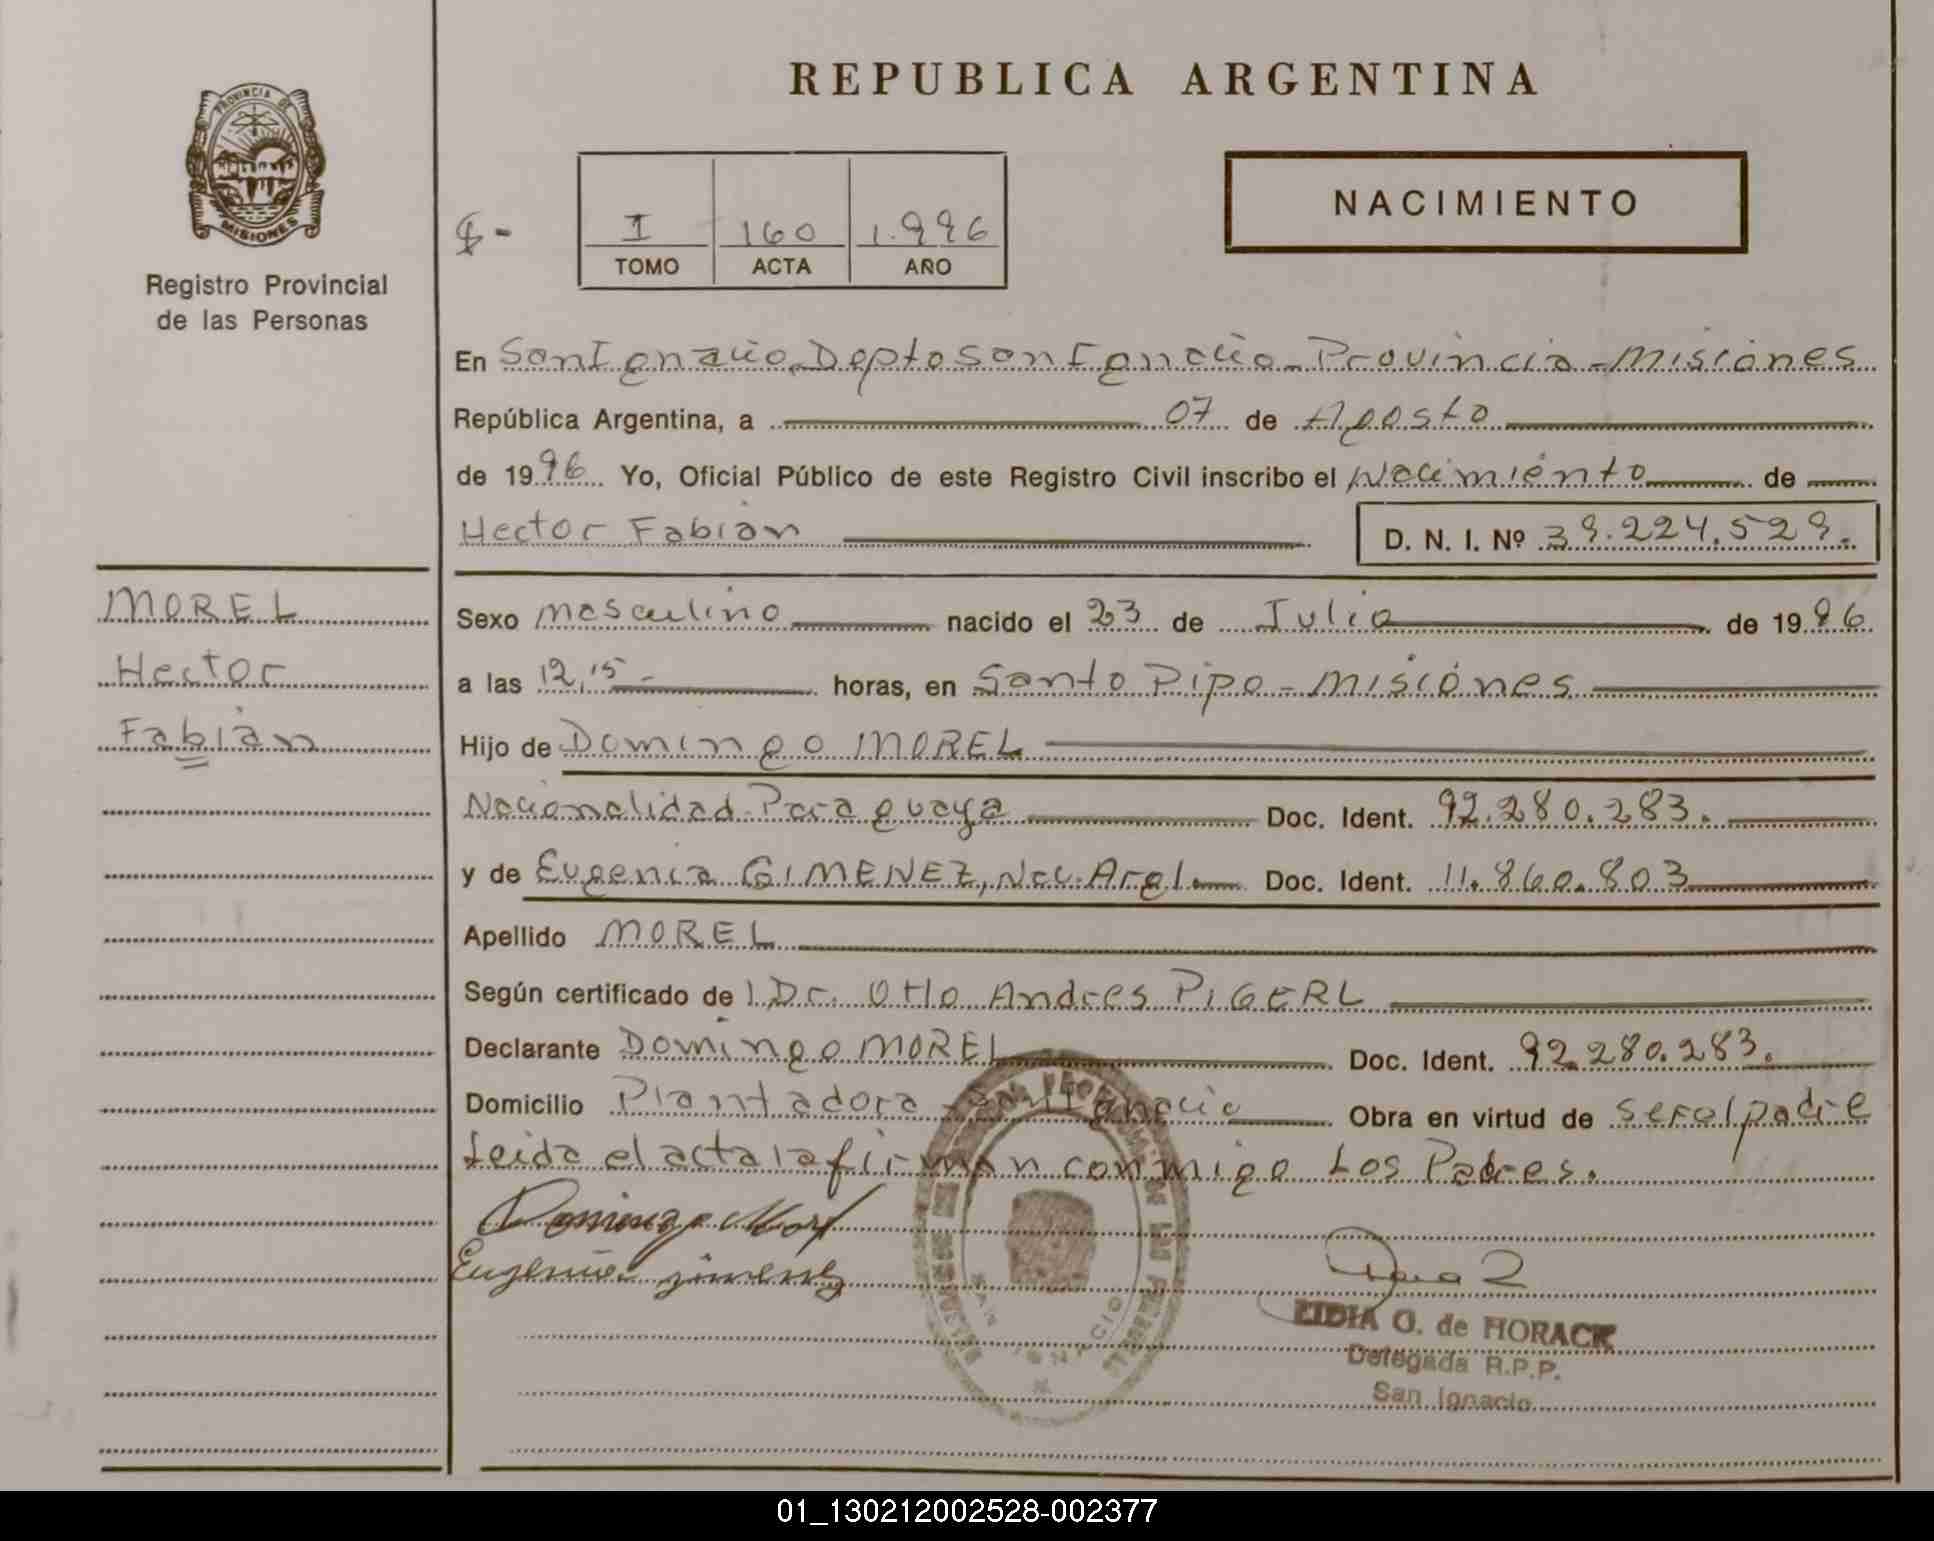 PROVINCIA DE
MISIONES
Registro Provincial
de las Personas
REPUBLICA ARGENTINA
NACIMIENTO
I 160 1.996
TOMO ACTA AÑO
En San Ignacio, Depto San Ignacio - Provincia - Misiones
República Argentina, a 07 de Agosto
de 1996 Yo, Oficial Público de este Registro Civil inscribo el Nacimiento de
Hector Fabian D. N. I. Nº 39.224.529.
MOREL
Hector
Fabian
Sexo masculino nacido el 23 de Julio de 1996
a las 12,15 - horas, en Santo Pipo - Misiones
Hijo de Domingo MOREL
Nacionalidad Paraguaya Doc. Ident. 92.280.283.
y de Eugenia GIMENEZ, Nac. Arg Doc. Ident. 11.860.803
Apellido MOREL
Según certificado de l Dr. Otto Andres PIGERL
Declarante Domingo MOREL Doc. Ident. 92.280.283.
Domicilio Plantadora - San Ignacio Obra en virtud de ser el padre
Leida el acta la firman conmigo Los Padres.
Domingo Morel
Eugenia Jimenez
SAN IGNACIO
LIDIA O. de HORACK
Delegada R.P.P.
San Ignacio
01_130212002528-002377